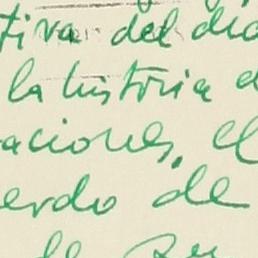 tiva del dia
la historia d
aciones, el
erdo de